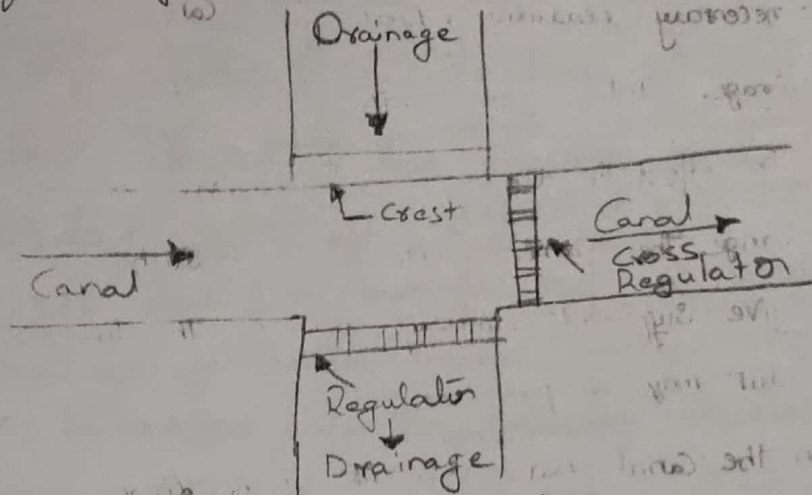 (a)
Drainage
Crest
Canal
Canal
Cross
Regulator
Regulator
Drainage